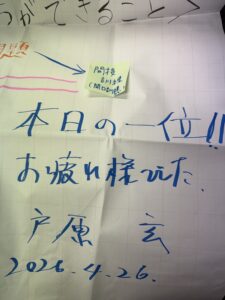 うができること＞
本日の一位!!
お疲れ様でした.
戸原 玄
2026.4.26.